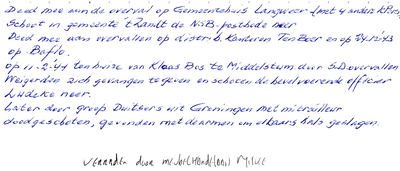 Deed mee aan de overval op Gemeentehuis Langweer (met 4 andere K.P.ers
Schoot in gemeente 't Zandt de N.S.B. postbode neer
Deed mee aan overvallen op distrib. Kantoren Ten Boer en op 24-12-43
op Baflo.
op 11-2-44 ten huize van Klaas Bos te Middelstum door S.D. overvallen
Weigerden zich gevangen te geven en schoten de bevelvoerende officier
Lüdeke neer.
Later door groep Duitsers uit Groningen met mitrailleur
doodgeschoten, gevonden met de armen om elkaars hals geslagen.
verraden door